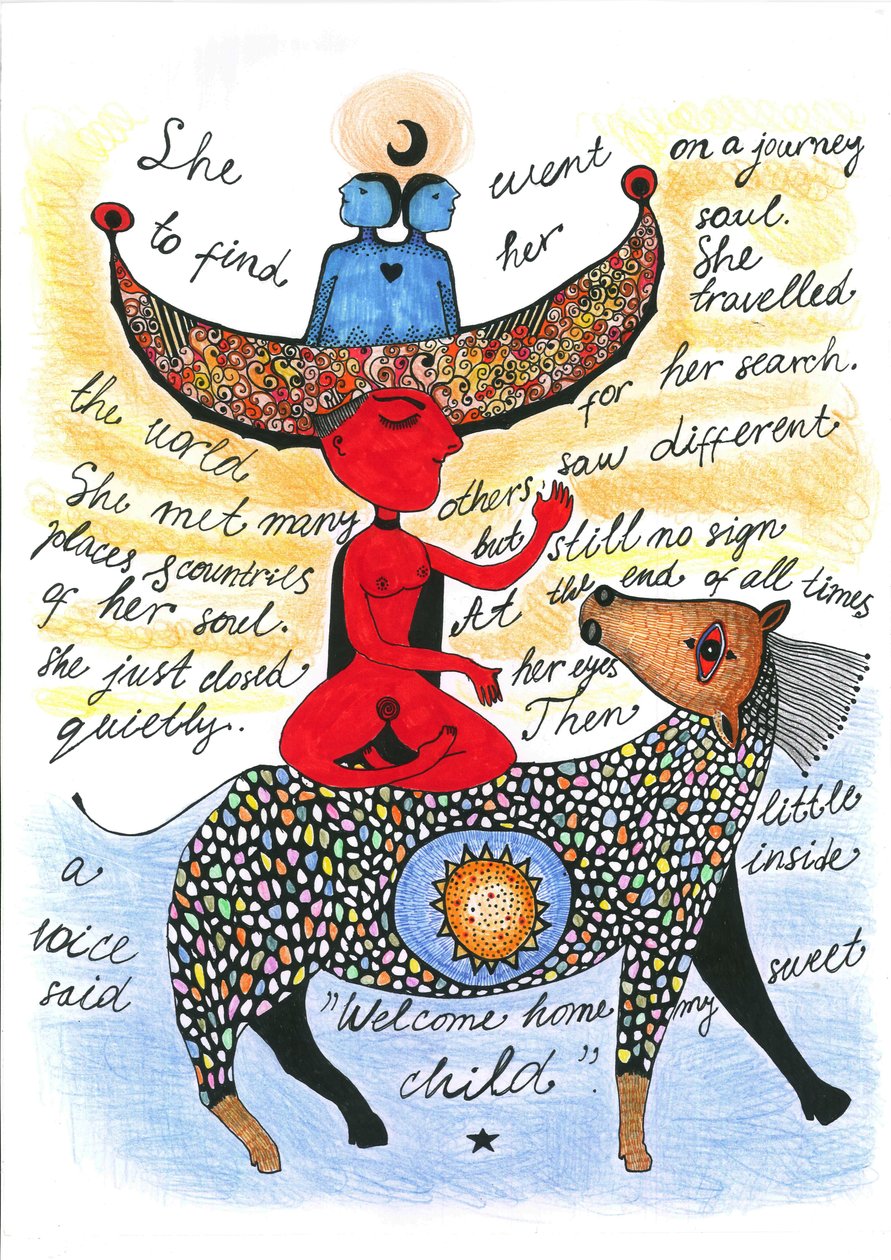 She went on a journey
to find her soul.
She
travelled
the world for her search.
She met many others, saw different
places & countries but still no sign
of her soul. At the end of all times
she just closed her eyes
quietly. Then
a little
voice inside
said "Welcome home my sweet
child".